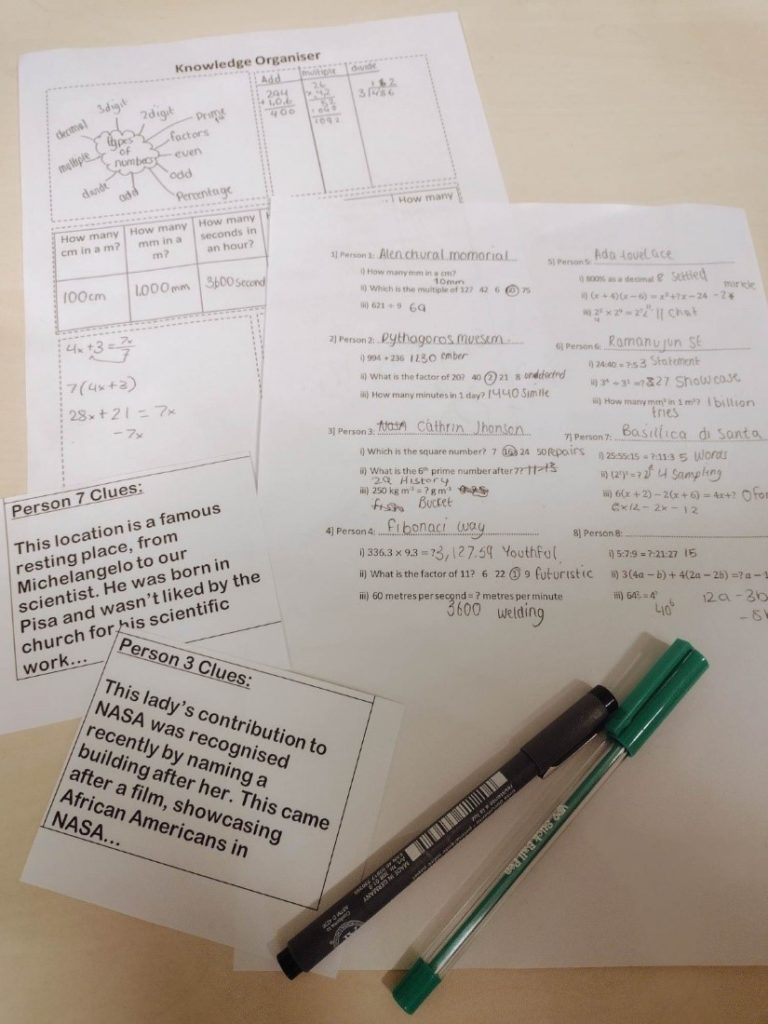 Knowledge Organiser
3digit
2digit
decimal
Prime
types
of
numbers
factors
multiple
even
odd
divide
add
Percentage
Add
multiple
divide
294
+106
400
26
1092
3√486
162
How many cm in a m?
How many mm in a m?
How many seconds in an hour?
How many
100cm
1,000mm
3600 second
4x+3 = 7x/7
7(4x+3)
28x+21 = 7x
-7x
1] Person 1: Alenchural momorial
i) How many mm in a cm?
10mm
ii) Which is the multiple of 12? 42 6 60 75
iii) 621 ÷ 9 69
2] Person 2: Pythagoros muesem
i) 994 + 236 1230 ember
ii) What is the factor of 20? 40 2 21 8 undetected
iii) How many minutes in 1 day? 1440 Simile
3] Person 3: Nasa Cathrin Jhonson
i) Which is the square number? 7 16 24 50 repairs
ii) What is the 6th prime number after 7?
29 History
iii) 250 kg m⁻³ = ? g m⁻³
Bucket
4] Person 4: fibonaci way
i) 336.3 × 9.3 = ? 3,127.59 Youthful
ii) What is the factor of 11? 6 22 1 9 futuristic
iii) 60 metres per second = ? metres per minute
3600 welding
5] Person 5: Ada lovelace
i) 800% as a decimal 8 Settled
ii) (x + 4)(x − 6) = x² + ?x − 24 -2
11 Chat
6] Person 6: Ramanujun St
i) 24:40 = ?:5 3 Statement
ii) 3⁴ ÷ 3¹ = ? 27 Showcase
iii) How many mm³ in 1 m³? 1 billion
fries
7] Person 7: Basillica di Santa
i) 25:55:15 = ?:11:3 5 Words
4 Sampling
iii) 6(x + 2) − 2(x + 6) = 4x + ? 0
6x12 - 2x - 12
8] Person 8:
i) 5:7:9 = ?:21:27 15
ii) 3(4a − b) + 4(2a − 2b) = ?a − 1
12a - 3b
Person 7 Clues:
This location is a famous
resting place, from
Michelangelo to our
scientist. He was born in
Pisa and wasn't liked by the
church for his scientific
work...
Person 3 Clues:
This lady's contribution to
NASA was recognised
recently by naming a
building after her. This came
after a film, showcasing
African Americans in
NASA...
MADE IN GERMANY
Stick Ball Pen